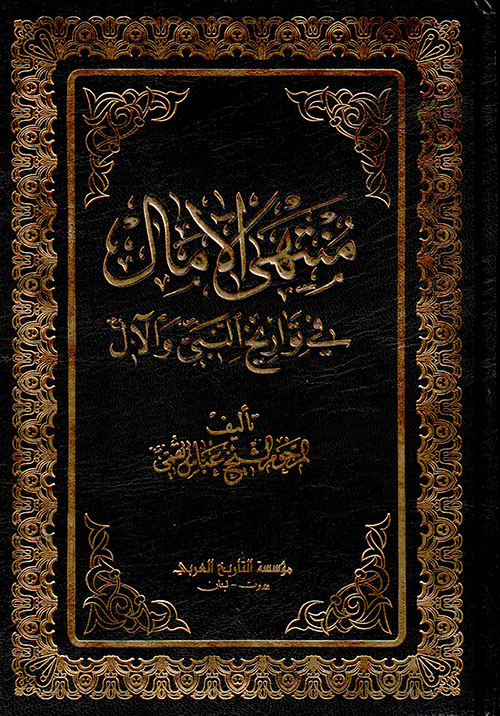 مُنْتَهَى الآمَال
في تواريخ النبيّ والآل
تأليف
المرحوم الشيخ عباس القميّ
مؤسسة التاريخ العربي
بيروت - لبنان